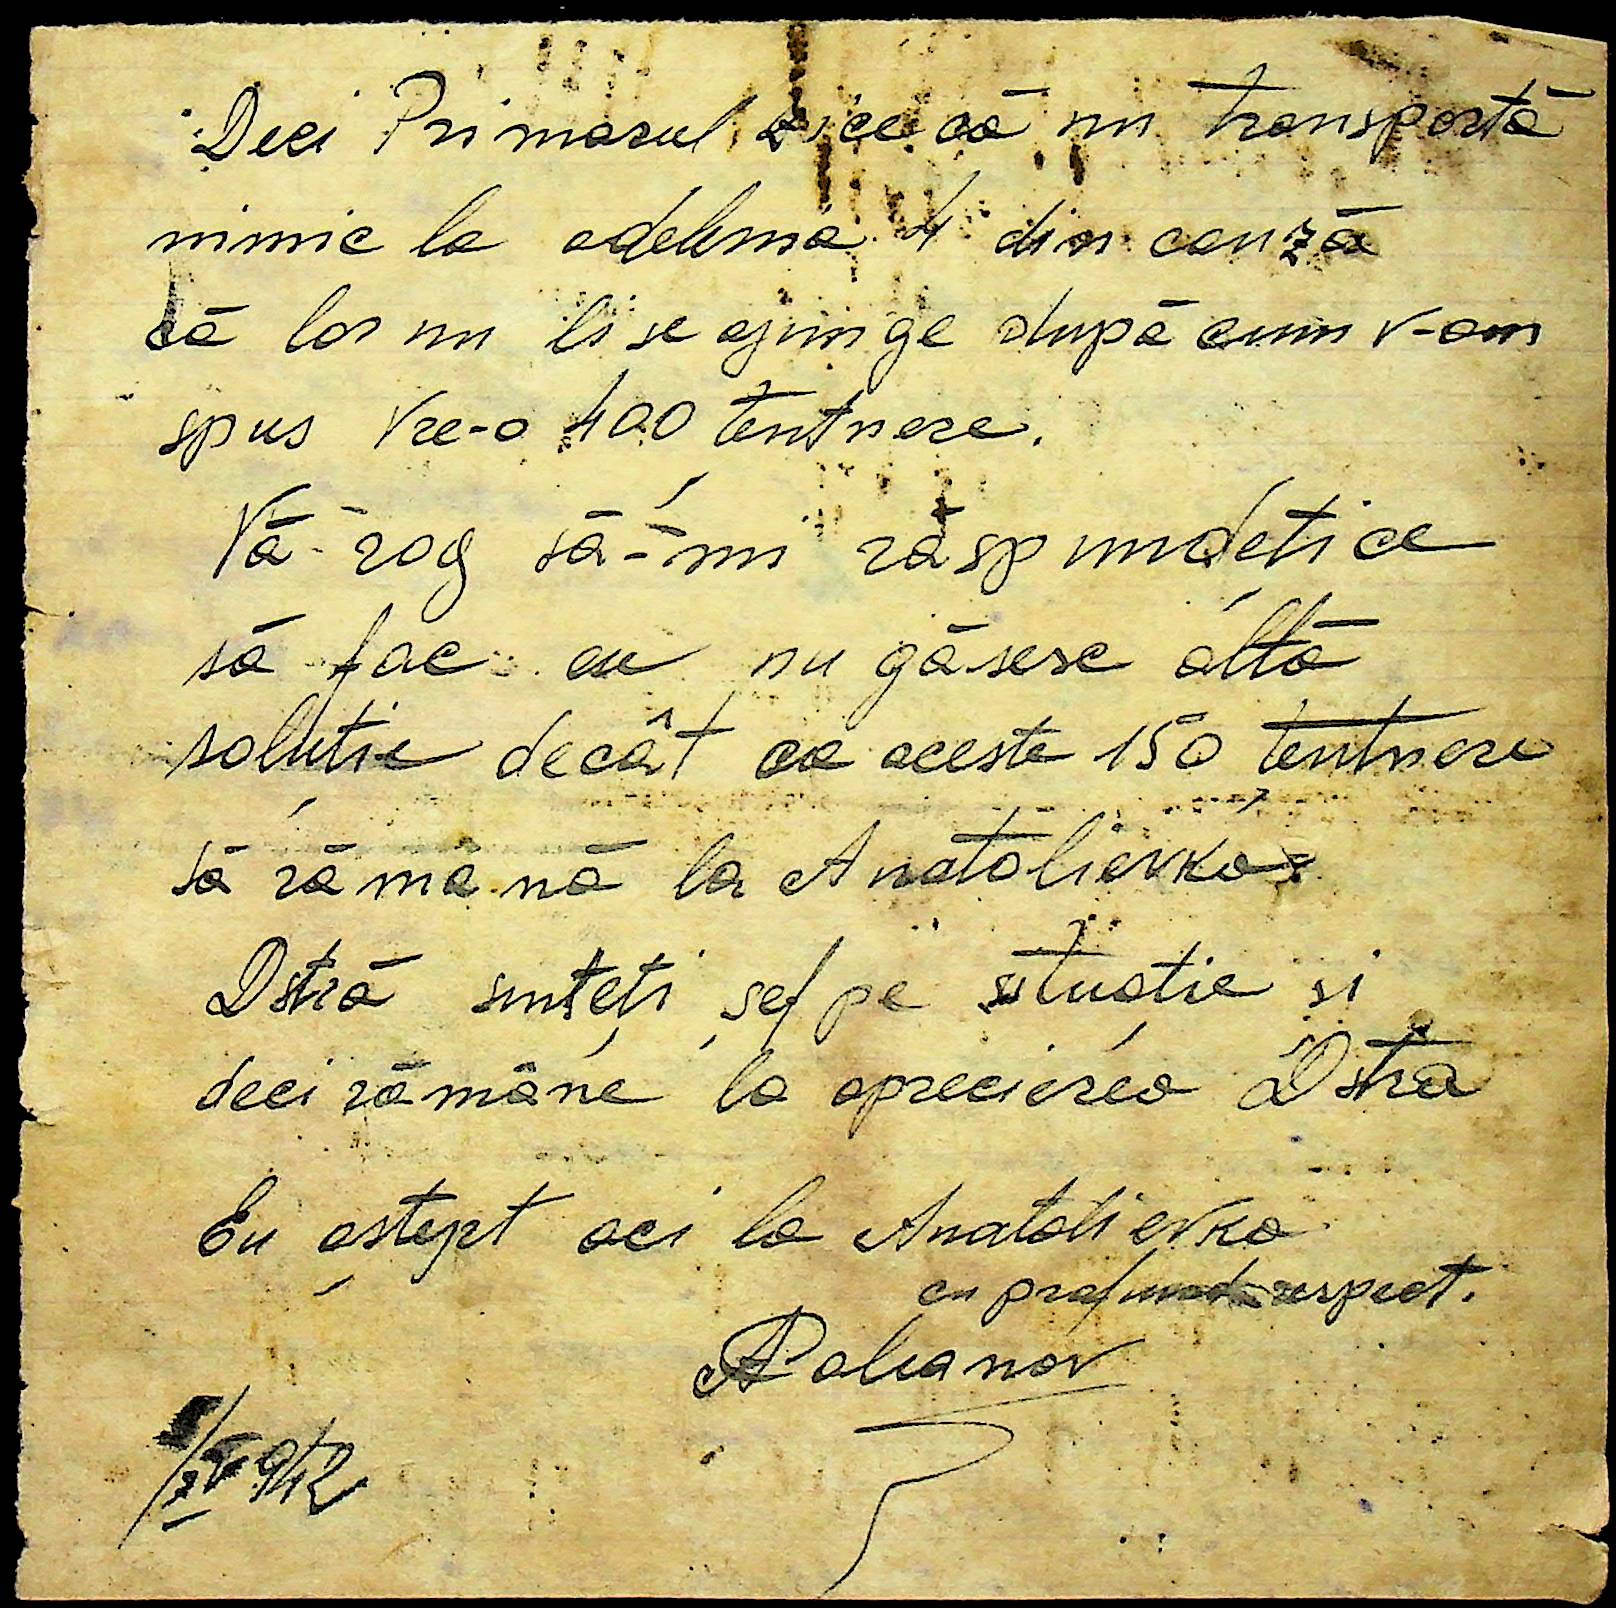 Deci Primarul zice că nu transportă
nimic la adelma 4 din cauză
că lor nu li se ajunge după cum v-am
spus vre-o 400 tentnere.
Vă rog să-mi răspundeti ce
să fac eu nu găsesc altă
solutie decât ca aceste 150 tentnere
să rămână la Anatolievka
Dstră sunteți șef pe situatie si
deci rămâne la aprecierea Dstră
Eu astept aci la Anatolievka
cu profund respect.
APolianov
/IV 942